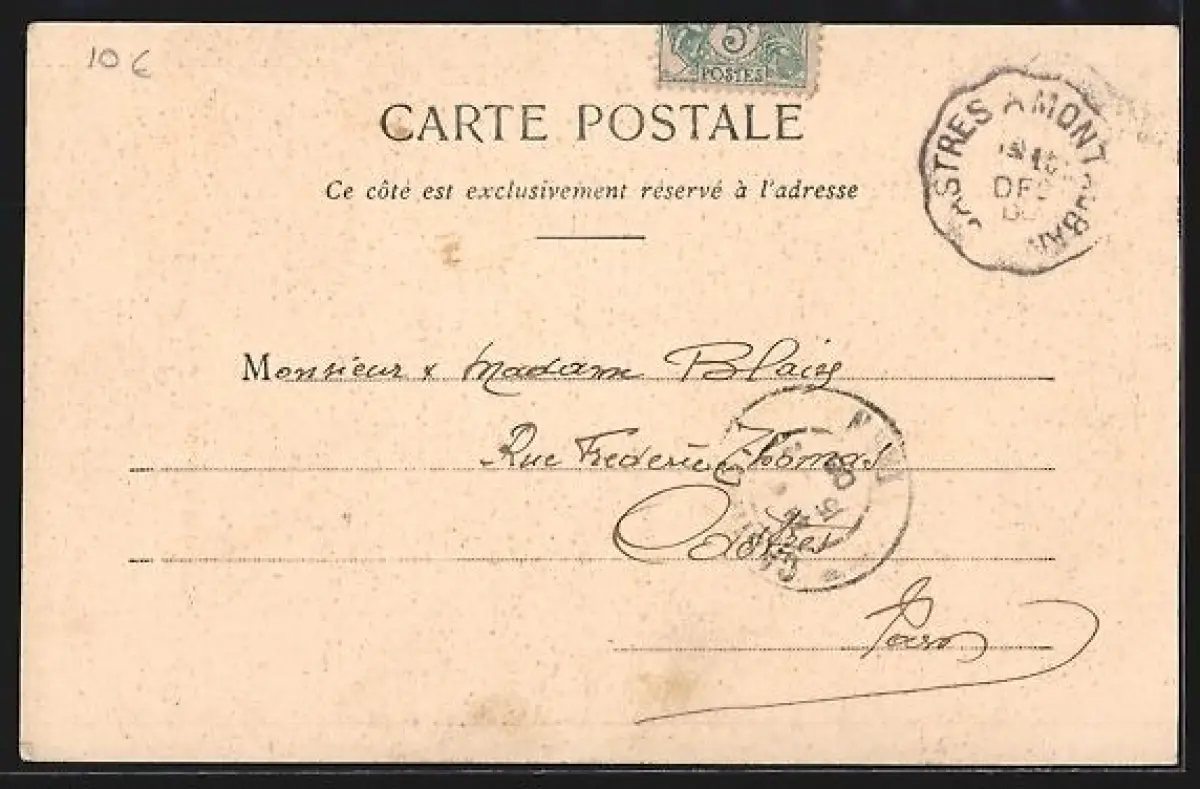 10 €
5c
POSTES
CARTE POSTALE
Ce côté est exclusivement réservé à l'adresse
CASTRES A MONTAUBAN
DEC
Monsieur & Madame
Rue Frederic Thomas
Castres
Tarn